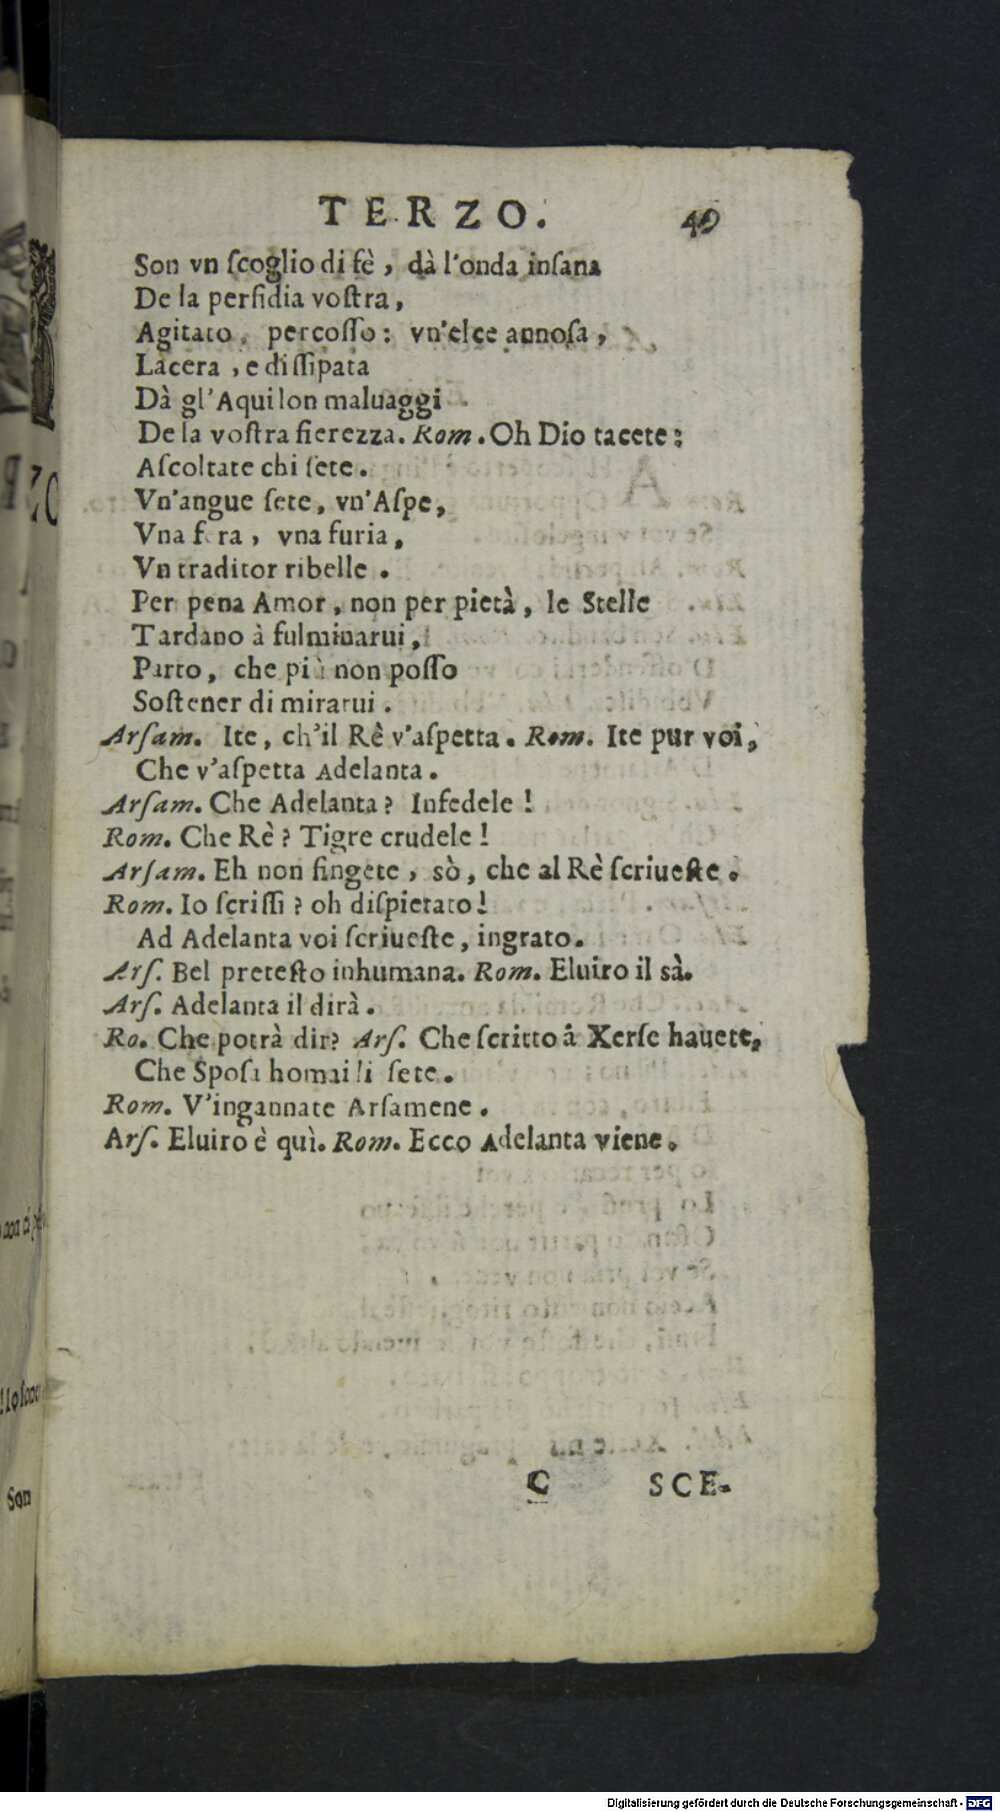 TERZO. 49
Son vn ſcoglio di fè, dà l'onda inſana
De la perfidia voſtra,
Agitato, percoſſo: vn'elce annoſa,
Lacera, e diſſipata
Dà gl'Aquilon maluaggi
De la voſtra fierezza. Rom. Oh Dio tacete;
Aſcoltate chi ſete.
Vn'angue ſete, vn'Aſpe,
Vna fera, vna furia,
Vn traditor ribelle.
Per pena Amor, non per pietà, le Stelle
Tardano à fulminarui,
Parto, che più non poſſo
Soſtener di mirarui.
Arſam. Ite, ch'il Rê v'aſpetta. Rom. Ite pur voi,
Che v'aſpetta Adelanta.
Arſam. Che Adelanta? Infedele!
Rom. Che Rè? Tigre crudele!
Arſam. Eh non fingete, sò, che al Rè ſcriueſte.
Rom. Io ſcriſſi? oh diſpietato!
Ad Adelanta voi ſcriueſte, ingrato.
Arſ. Bel preteſto inhumana. Rom. Eluiro il sà.
Arſ. Adelanta il dirà.
Ro. Che potrà dir? Arſ. Che ſcritto à Xerſe hauete,
Che Spoſa homai li ſete.
Rom. V'ingannate Arſamene.
Arſ. Eluiro è quì. Rom. Ecco Adelanta viene.
C SCE-
Son
Digitalisierung gefördert durch die Deutsche Forschungsgemeinschaft - DFG